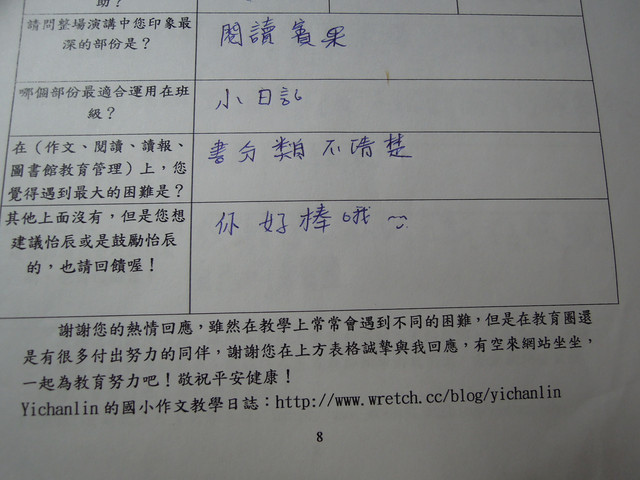 助？
請問整場演講中您印象最
深的部份是？
閱讀賓果
哪個部份最適合運用在班
級？
小日記
在（作文、閱讀、讀報、
圖書館教育管理）上，您
覺得遇到最大的困難是？
書分類不清楚
其他上面沒有，但是您想
建議怡辰或是鼓勵怡辰
的，也請回饋喔！
你好棒哦
謝謝您的熱情回應，雖然在教學上常常會遇到不同的困難，但是在教育圈還
是有很多付出努力的同伴，謝謝您在上方表格誠摯與我回應，有空來網站坐坐，
一起為教育努力吧！敬祝平安健康！
Yichanlin 的國小作文教學日誌：http://www.wretch.cc/blog/yichanlin
8